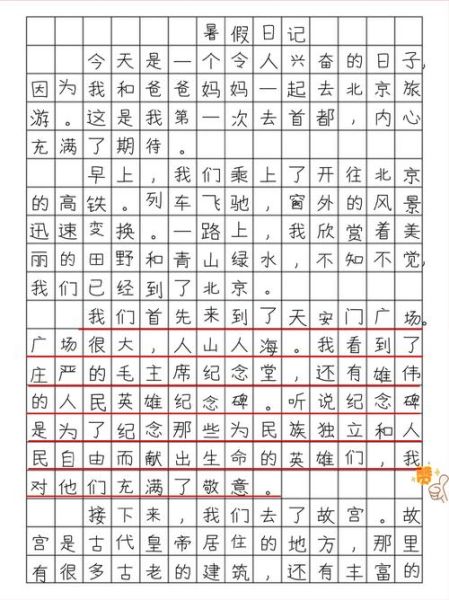 暑假日记
今天是一个令人兴奋的日子,
因为我和爸爸妈妈一起去北京旅
游。这是我第一次去首都,内心
充满了期待。
早上,我们乘上了开往北京
的高铁。列车飞驰,窗外的风景
迅速变换。一路上,我欣赏着美
丽的田野和青山绿水,不知不觉,
我们已经到了北京。
我们首先来到了天安门广场。
广场很大,人山人海。我看到了
庄严的毛主席纪念堂,还有雄伟
的人民英雄纪念碑。听说纪念碑
是为了纪念那些为民族独立和人
民自由而献出生命的英雄们,我
对他们充满了敬意。
接下来,我们去了故宫。故
宫是古代皇帝居住的地方,那里
有很多古老的建筑,还有丰富的